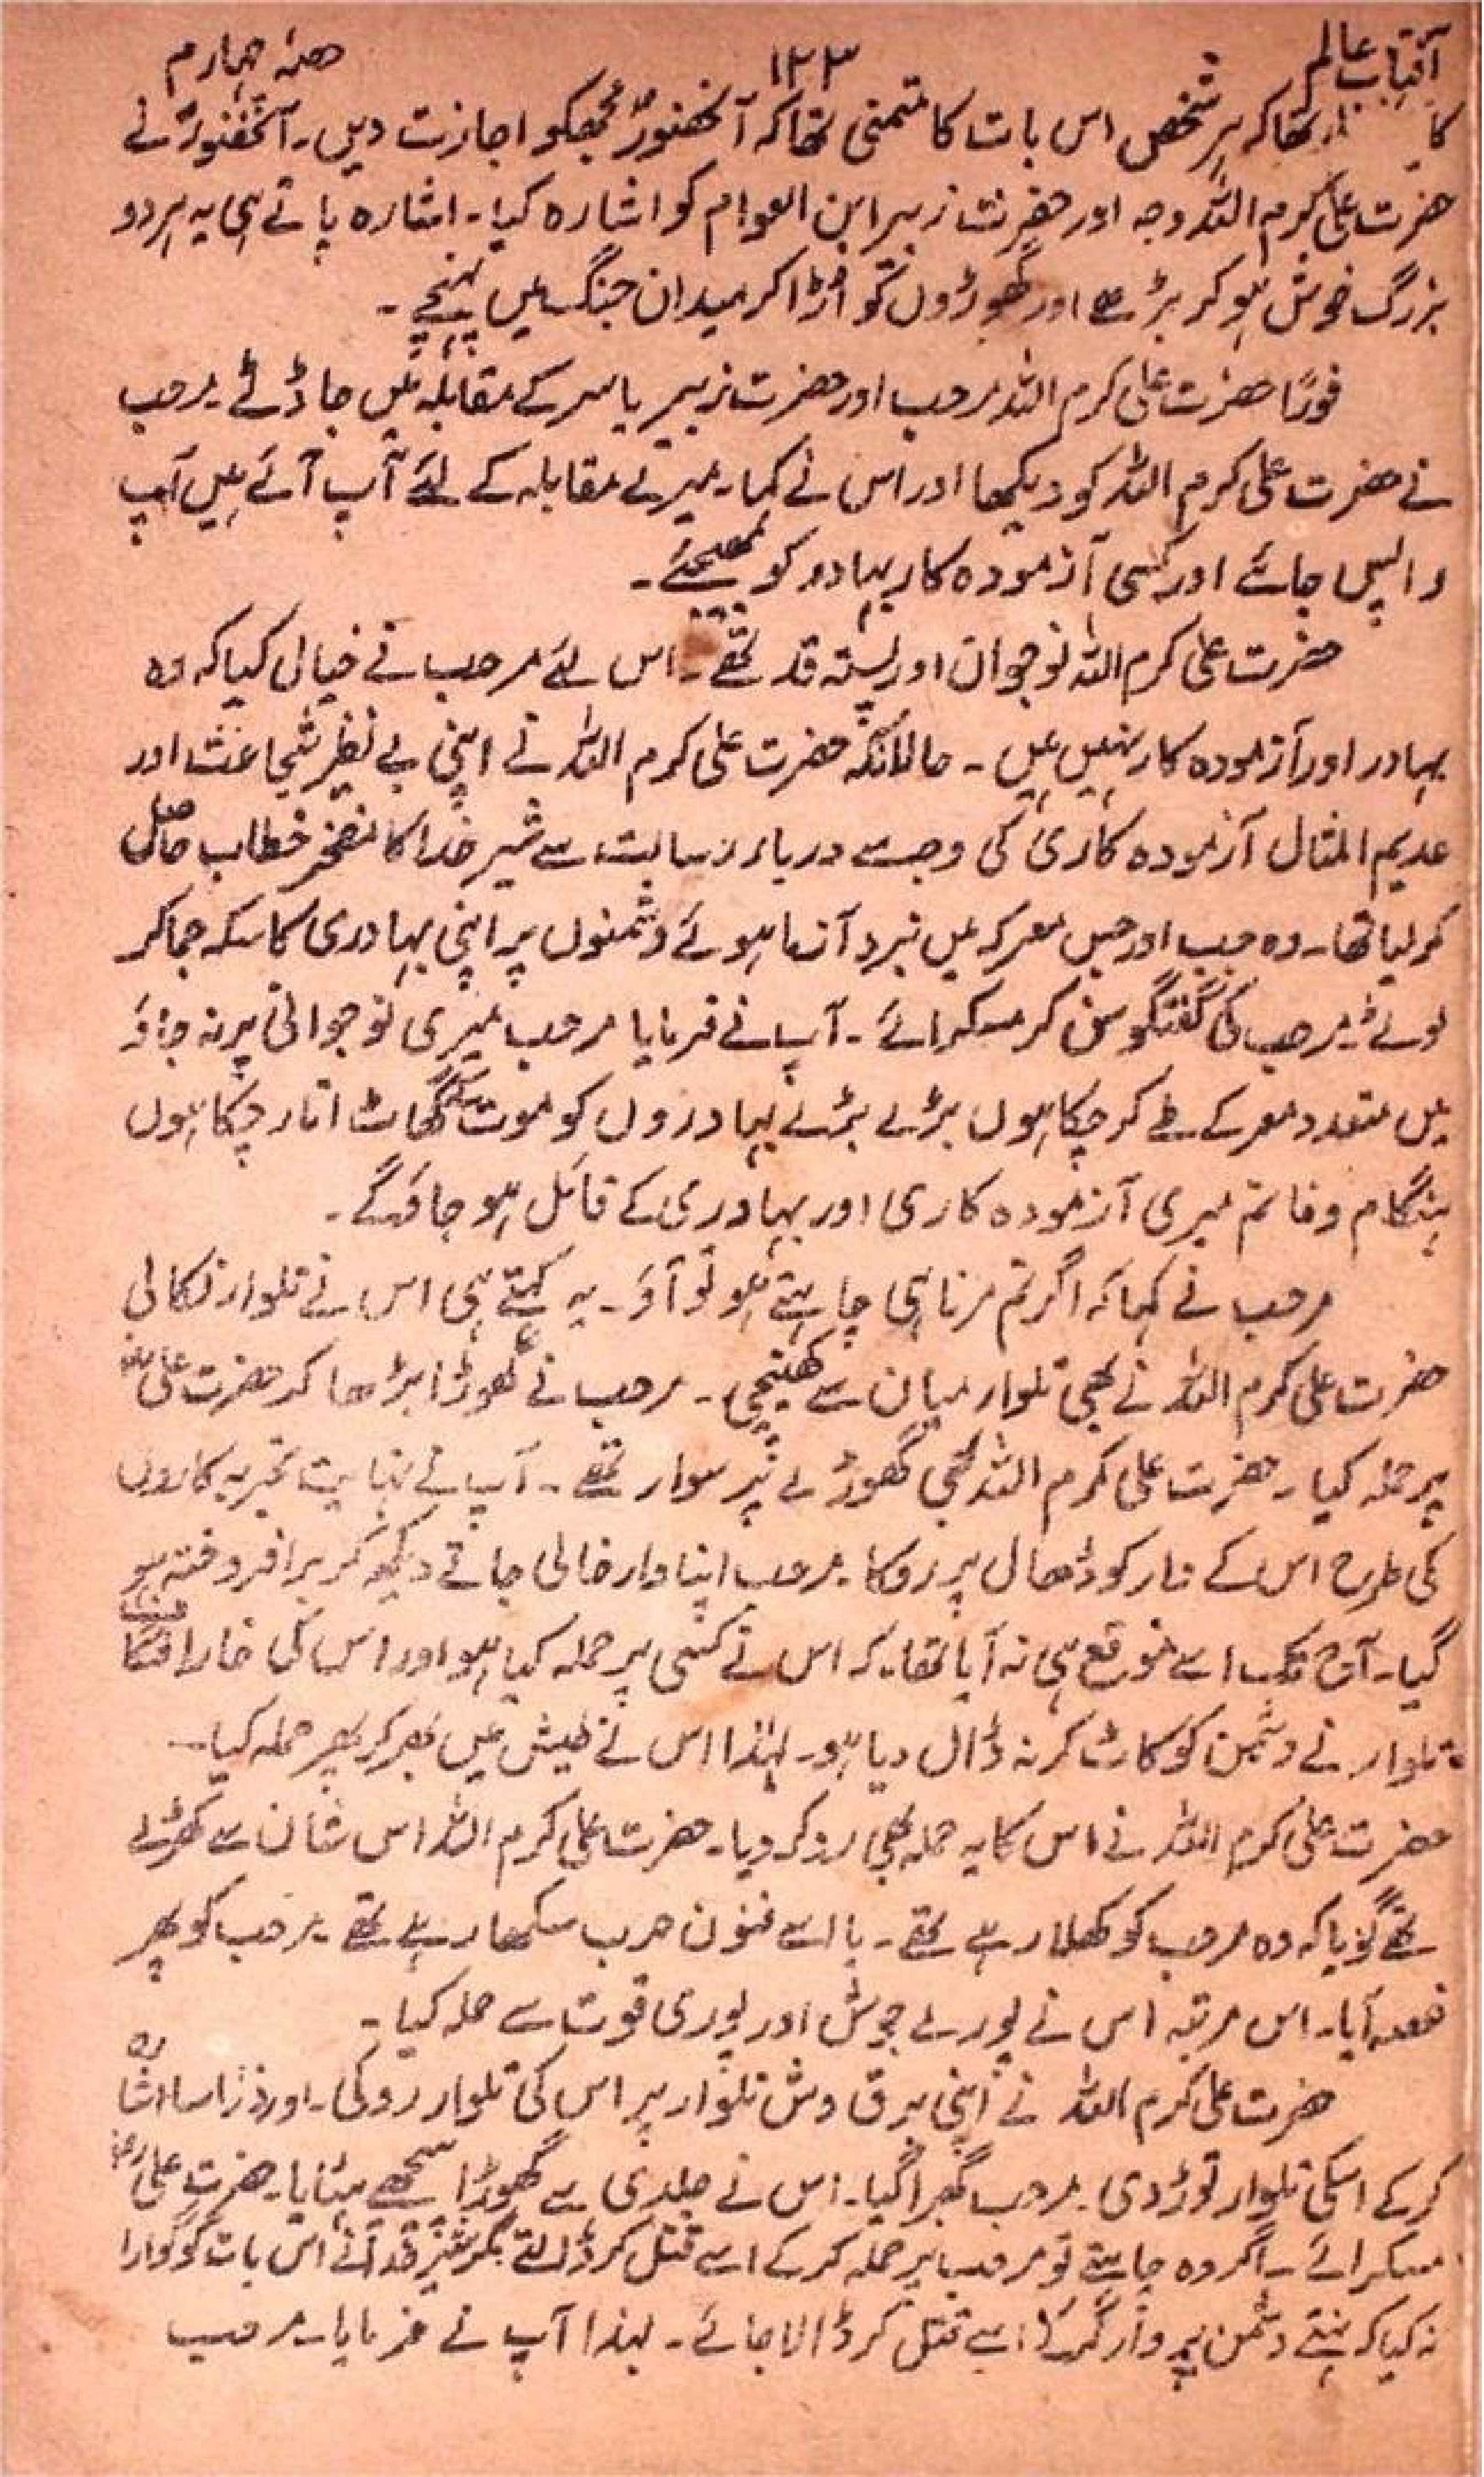 آفتاب عالم ۱۲۳ حصہ چہارم
کا تھا کہ ہر شخص اس بات کا متمنی تھا کہ آنحضورؐ مجھکو اجازت دیں۔ آنحضورؐ نے
حضرت علی کرم اللہ وجہ اور حضرت زبیر ابن العوام کو اشارہ کیا۔ اشارہ پاتے ہی یہ ہر دو
بزرگ خوش ہو کر بڑھے اور گھوڑوں کو اڑا کر میدان جنگ میں پہنچے۔
فورًا حضرت علی کرم اللہ مرحب اور حضرت زبیر یاسر کے مقابلہ میں جا ڈٹے۔ مرحب
نے حضرت علی کرم اللہ کو دیکھا اور اس نے کہا۔ میرے مقابلہ کے لئے آپ آئے ہیں آپ
واپس جائے اور کسی آزمودہ کار بہادر کو بھیجئے۔
حضرت علی کرم اللہ نوجوان اور پستہ قد تھے۔ اس لئے مرحب نے خیال کیا کہ وہ
بہادر اور آزمودہ کار نہیں ہیں۔ حالانکہ حضرت علی کرم اللہ نے اپنی بے نظیر شجاعت اور
عدیم المثال آزمودہ کاری کی وجہ سے دربار رسالت سے شیر خدا کا خطاب حاصل
کر لیا تھا۔ وہ جب اور جس معرکہ میں نبرد آزما ہوئے دشمنوں پر اپنی بہادری کا سکہ جما کر
لوٹے۔ مرحب کی گفتگو سن کر مسکرائے۔ آپ نے فرمایا مرحب میری نوجوانی پر نہ جاؤ
میں متعدد معرکے طے کر چکا ہوں بڑے بڑے بہادروں کو موت کے گھاٹ اتار چکا ہوں
ہنگام وغا تم میری آزمودہ کاری اور بہادری کے قائل ہو جاؤگے۔
مرحب نے کہا کہ اگر تم مرنا ہی چاہتے ہو تو آؤ۔ یہ کہتے ہی اس نے تلوار نکالی
حضرت علی کرم اللہ نے بھی تلوار میان سے کھینچی۔ مرحب نے گھوڑا بڑھا کر حضرت علی
پر حملہ کیا۔ حضرت علی کرم اللہ بھی گھوڑے پر سوار تھے۔ آپ نے نہایت تجربہ کاروں
کی طرح اس کے وار کو ڈھال پر روکا۔ مرحب اپنا وار خالی جاتے دیکھ کر برافروختہ ہو
گیا۔ آج تک اسے موقع ہی نہ آیا تھا۔ کہ اس نے کسی پر حملہ کیا ہو اور اس کی خارا شگاف
تلوار نے دشمن کو کاٹ کر نہ ڈال دیا ہو۔ لہٰذا اس نے طیش میں بھر کر پھر حملہ کیا۔
حضرت علی کرم اللہ نے اس کا یہ حملہ بھی رد کر دیا۔ حضرت علی کرم اللہ اس شان سے کھڑے
تھے گویا کہ وہ مرحب کو کھلا رہے تھے۔ یا اسے فنون حرب سکھا رہے تھے۔ مرحب کو پھر
غصہ آیا۔ اس مرتبہ اس نے پورے جوش اور پوری قوت سے حملہ کیا۔
حضرت علی کرم اللہ نے اپنی برق وش تلوار پر اس کی تلوار روکی۔ اور ذرا سا اشارہ
کر کے اسکی تلوار توڑ دی۔ مرحب گھبرا گیا۔ اس نے جلدی سے گھوڑا پیچھے ہٹایا۔ حضرت علیؓ
مسکرائے۔ اگر وہ چاہتے تو مرحب پر حملہ کر کے اسے قتل کر ڈالتے مگر شیر خدا نے اس بات کو گوارا
نہ کیا کہ نہتے دشمن پر وار کر کے اسے قتل کر ڈالا جائے۔ لہذا آپ نے فرمایا۔ مرحب